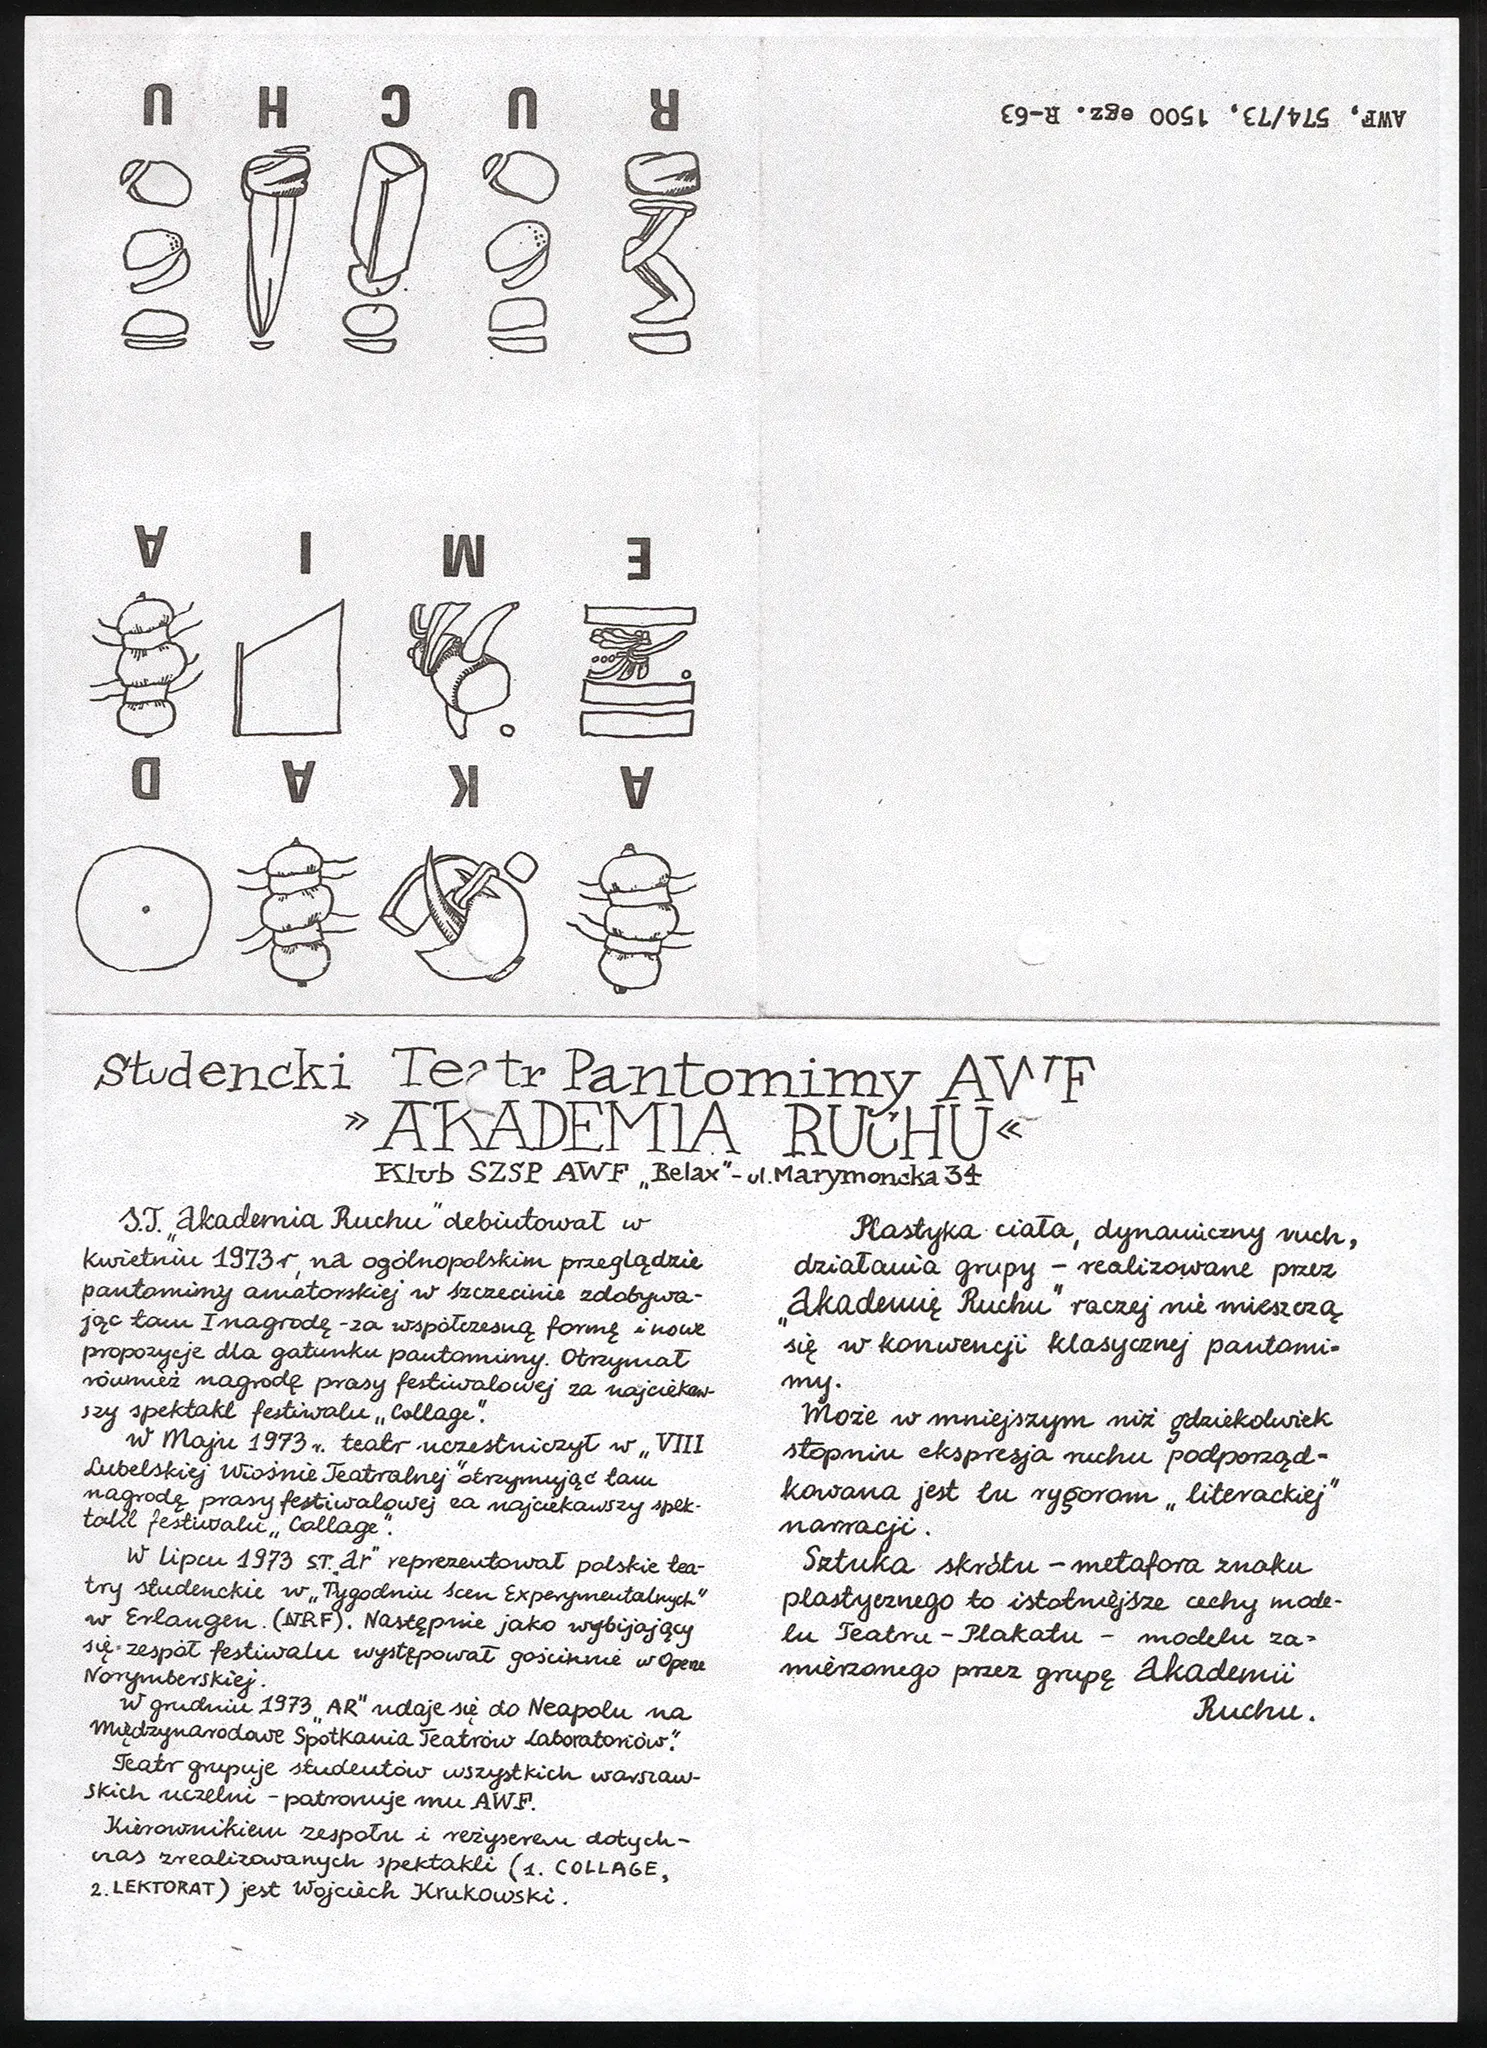 AWF, 574/73, 1500 egz. R-63
A K A D
E M I A
R U C H U
Studencki Teatr Pantomimy AWF
»AKADEMIA RUCHU«
Klub SZSP AWF „Relax” - ul. Marymoncka 34
S.T. „Akademia Ruchu” debiutował w
kwietniu 1973 r, na ogólnopolskim przeglądzie
pantomimy amatorskiej w Szczecinie zdobywa-
jąc tam I nagrodę - za współczesną formę i nowe
propozycje dla gatunku pantomimy. Otrzymał
również nagrodę prasy festiwalowej za najciekaw-
szy spektakl festiwalu „Collage”.
W Maju 1973 r. teatr uczestniczył w „VIII
Lubelskiej Wiośnie Teatralnej” otrzymując tam
nagrodę prasy festiwalowej za najciekawszy spek-
takl festiwalu „Collage”.
W lipcu 1973 S.T. „Ar” reprezentował polskie tea-
try studenckie w „Tygodniu Scen Experymentalnych”
w Erlangen. (NRF). Następnie jako wybijający
się zespół festiwalu występował gościnnie w Operze
Norymberskiej.
W grudniu 1973 „AR” udaje się do Neapolu na
Międzynarodowe Spotkania Teatrów Laboratoriów”.
Teatr grupuje studentów wszystkich warszaw-
skich uczelni - patronuje mu AWF.
Kierownikiem zespołu i reżyserem dotych-
czas zrealizowanych spektakli (1. COLLAGE,
2. LEKTORAT) jest Wojciech Krukowski.
Plastyka ciała, dynamiczny ruch,
działania grupy - realizowane przez
„Akademię Ruchu” raczej nie mieszczą
się w konwencji klasycznej pantomi-
my.
Może w mniejszym niż gdziekolwiek
stopniu ekspresja ruchu podporząd-
kowana jest tu rygorom „literackiej”
narracji.
Sztuka skrótu - metafora znaku
plastycznego to istotniejsze cechy mode-
lu Teatru - Plakatu - modelu za-
mierzonego przez grupę Akademii
Ruchu.